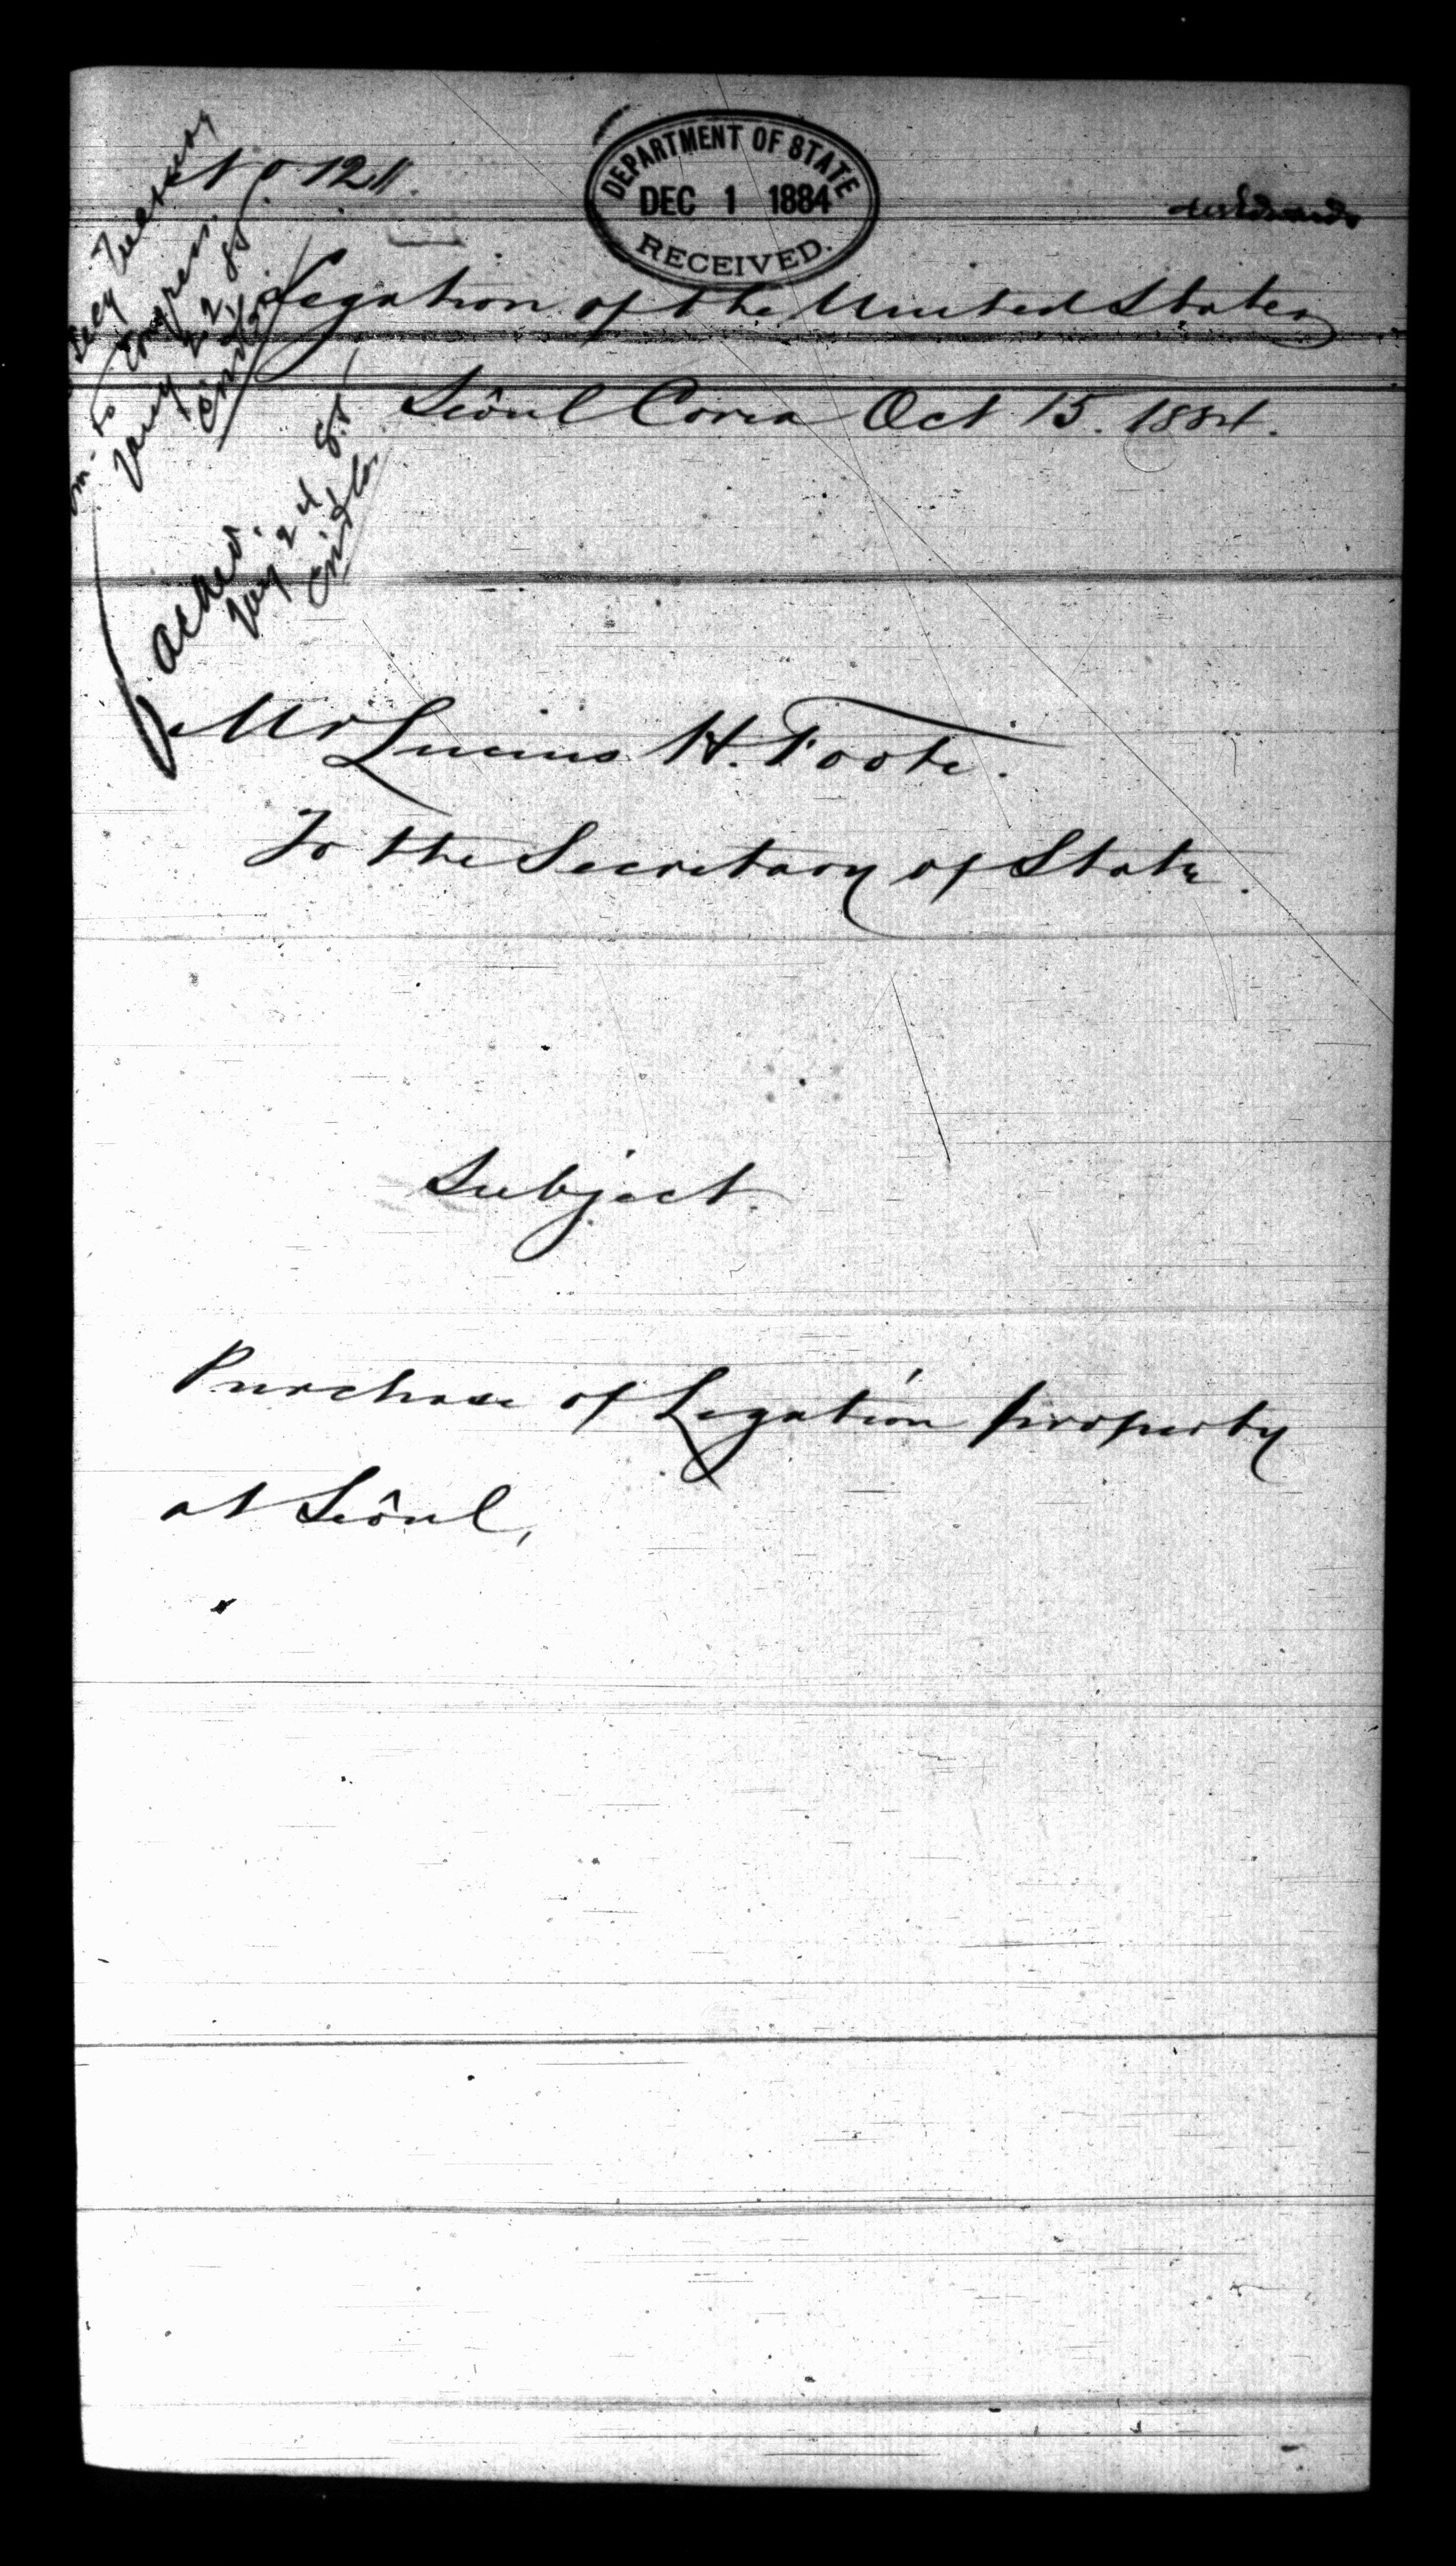 No 121.
DEPARTMENT OF STATE
DEC 1 1884
RECEIVED.
Legation of the United States
Seôul Corea Oct 15. 1884.
to Congress.
Jany 22, 85
Ackd.
Jany 24 85
Mr Lucius H. Foote.
To the Secretary of State.
Subject.
Purchase of Legation property
at Seôul,